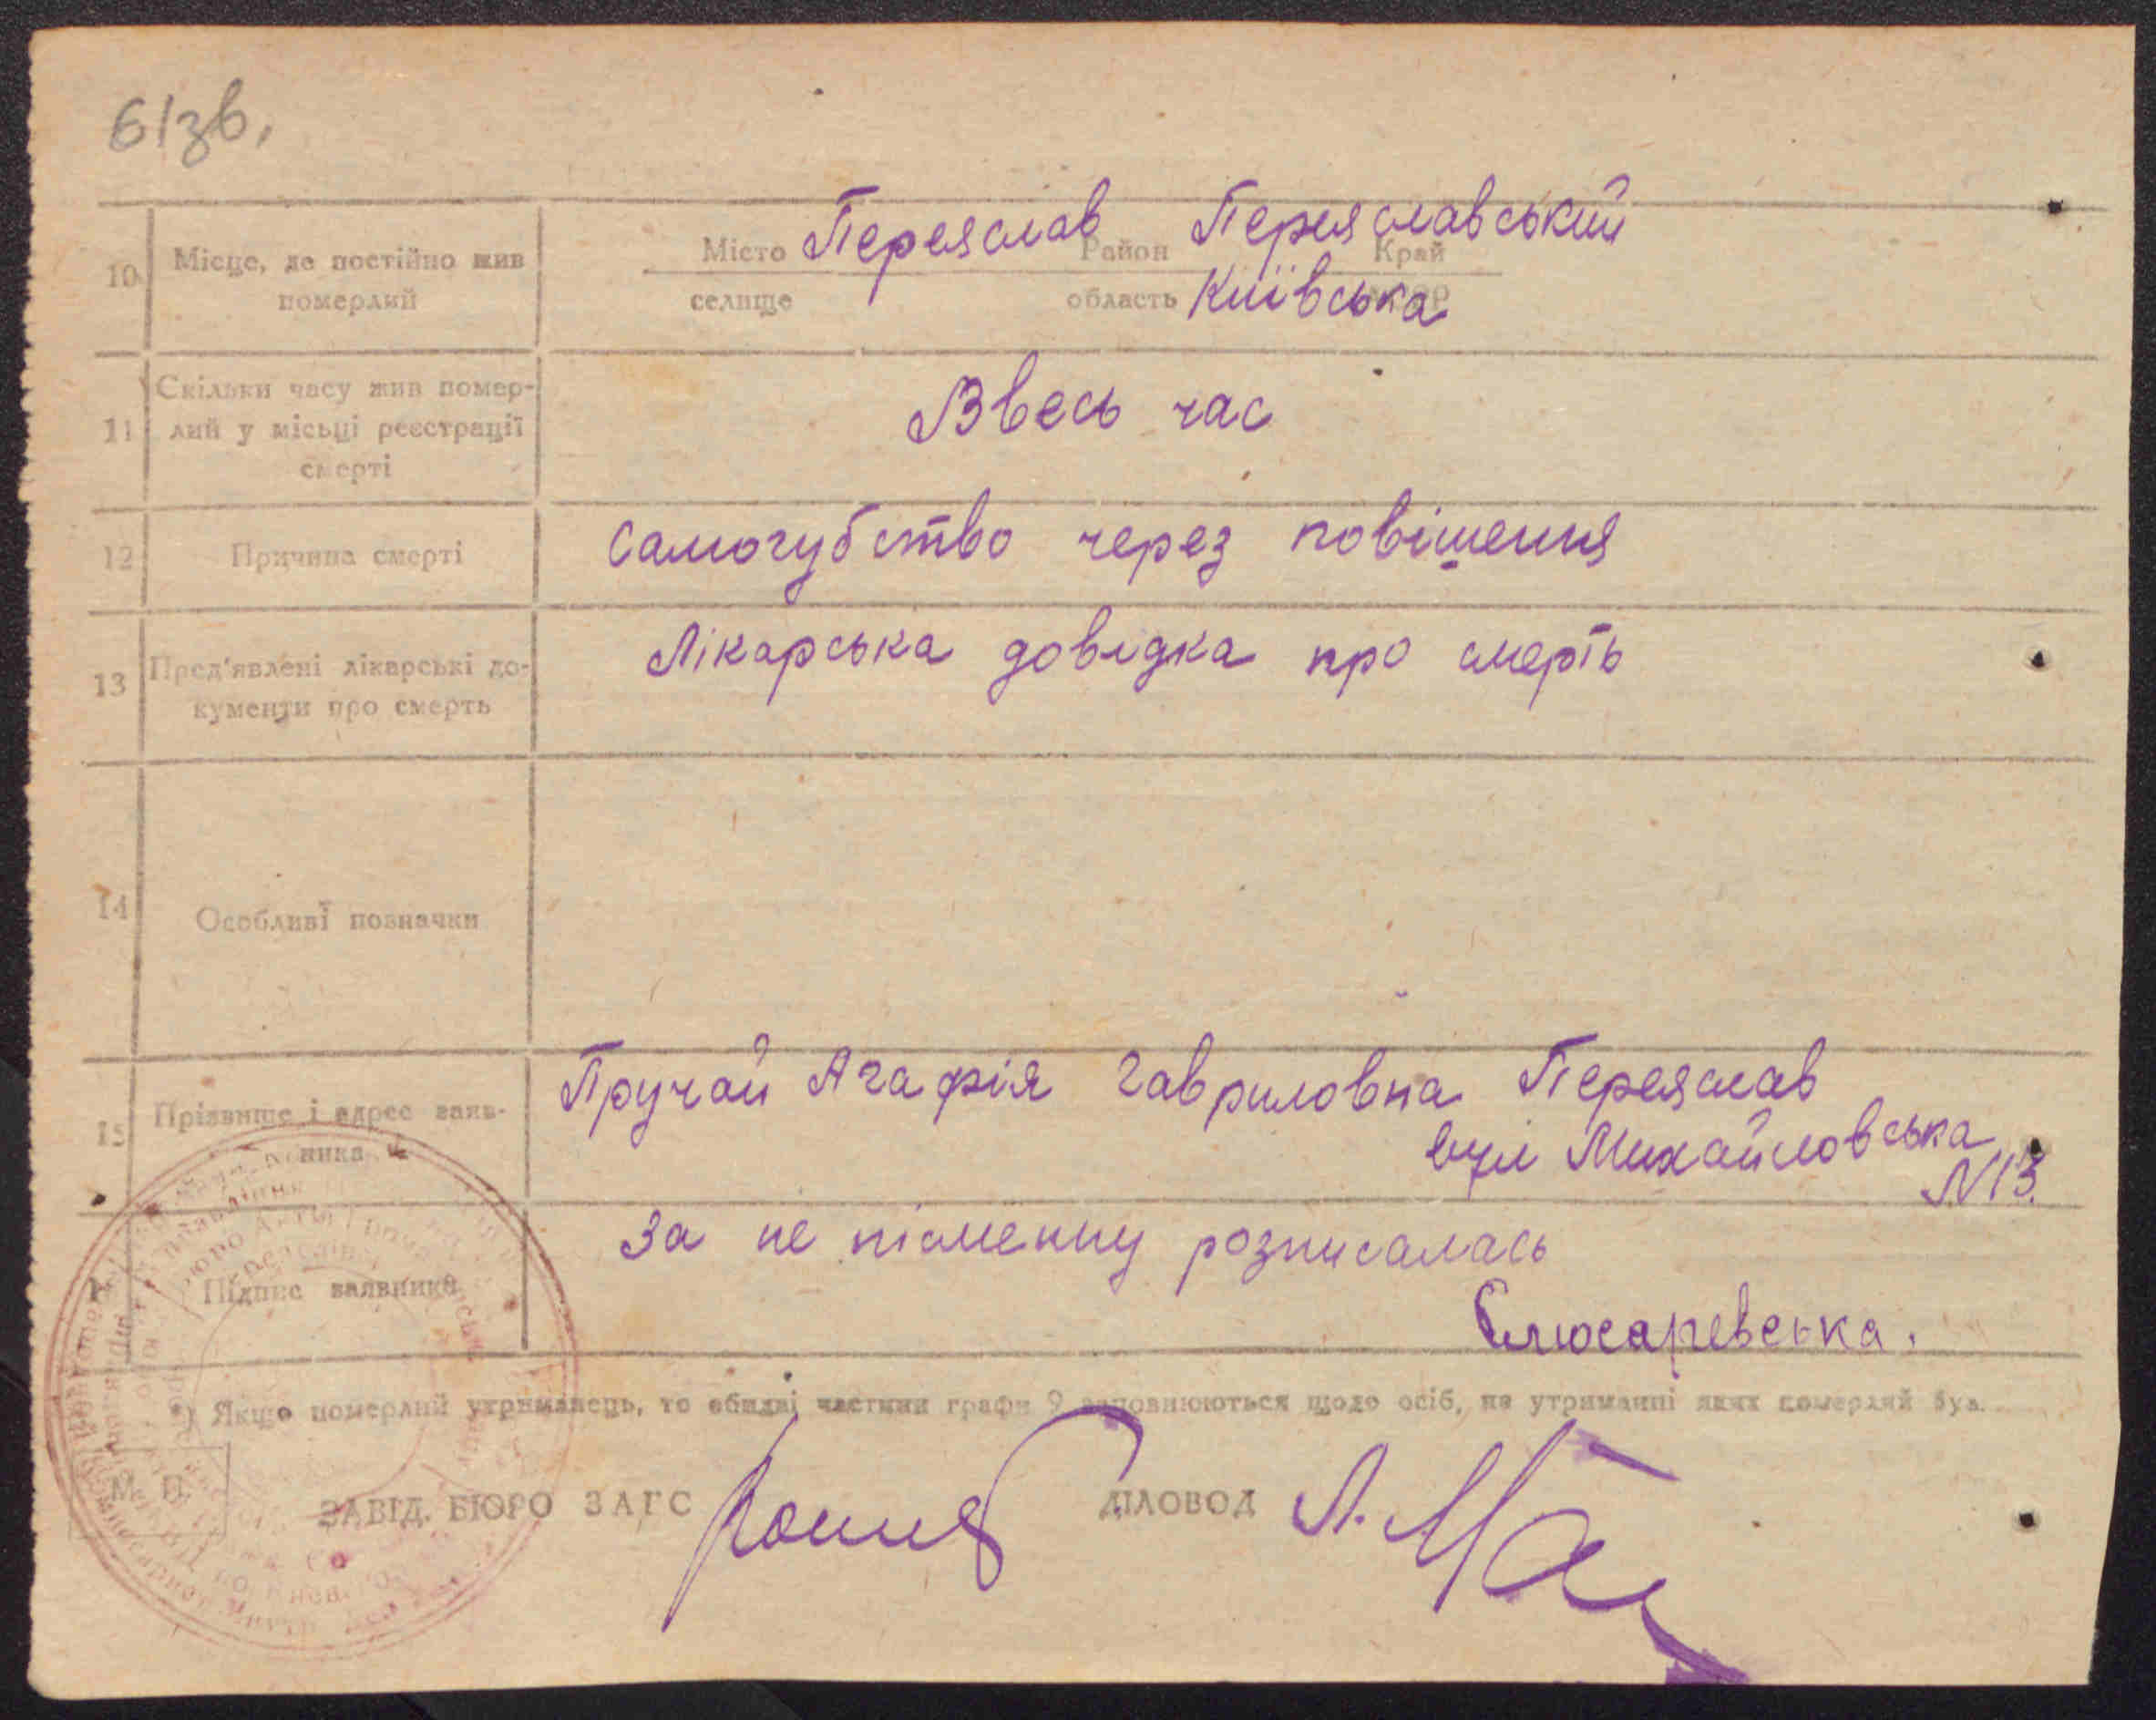 61зв.
10 Місце, де постійно жив
померлий
Місто Переяслав Район Переяславський Край
селище область Київська
11 Скільки часу жив помер-
лий у місьці реєстрації
смерті
Ввесь час
12 Причина смерті самогубство через повішення
13 Пред'явлені лікарські до-
кументи про смерть
Лікарська довідка про смерть
14 Особливі позначки
15 Прізвище і адрес заяв-
ника
Пручай Агафія Гавриловна Переяслав
вул Михайловська
N13.
Підпис заявника
за не пісменну розписалась
Слюсаревська.
*) Якщо померлий утриманець, то обидві частини графи 9 заповнюються щодо осіб, на утриманні яких померлий був.
М. П.
ЗАВІД. БЮРО ЗАГС ДІЛОВОД Л.